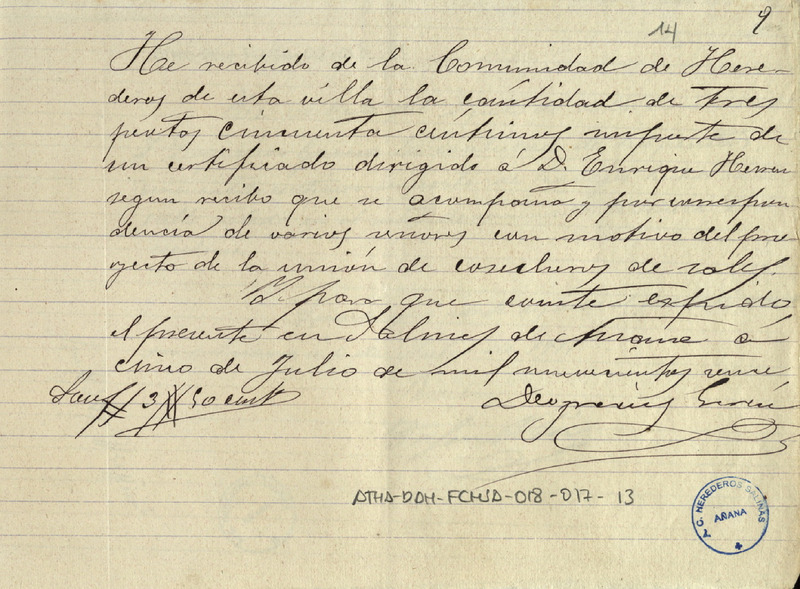 9
14
He recibido de la Comunidad de Here-
deros de esta villa la cantidad de tres
pestas cincuenta céntimos importe de
un certificado dirigido á D. Enrique Herran
segun recibo que se acompaña y por correspon
dencia de varios señores con motivo del pro
yecto de la unión de cosecheros de sales.
Y para que conste expido
el presente en Salinas de Añana á
cinco de Julio de mil novecientos
Son # 3 # 50 cents
Deogracias
ATHA-DAH-FCHSA-018-017-13
A. C. HEREDEROS SALINAS
AÑANA